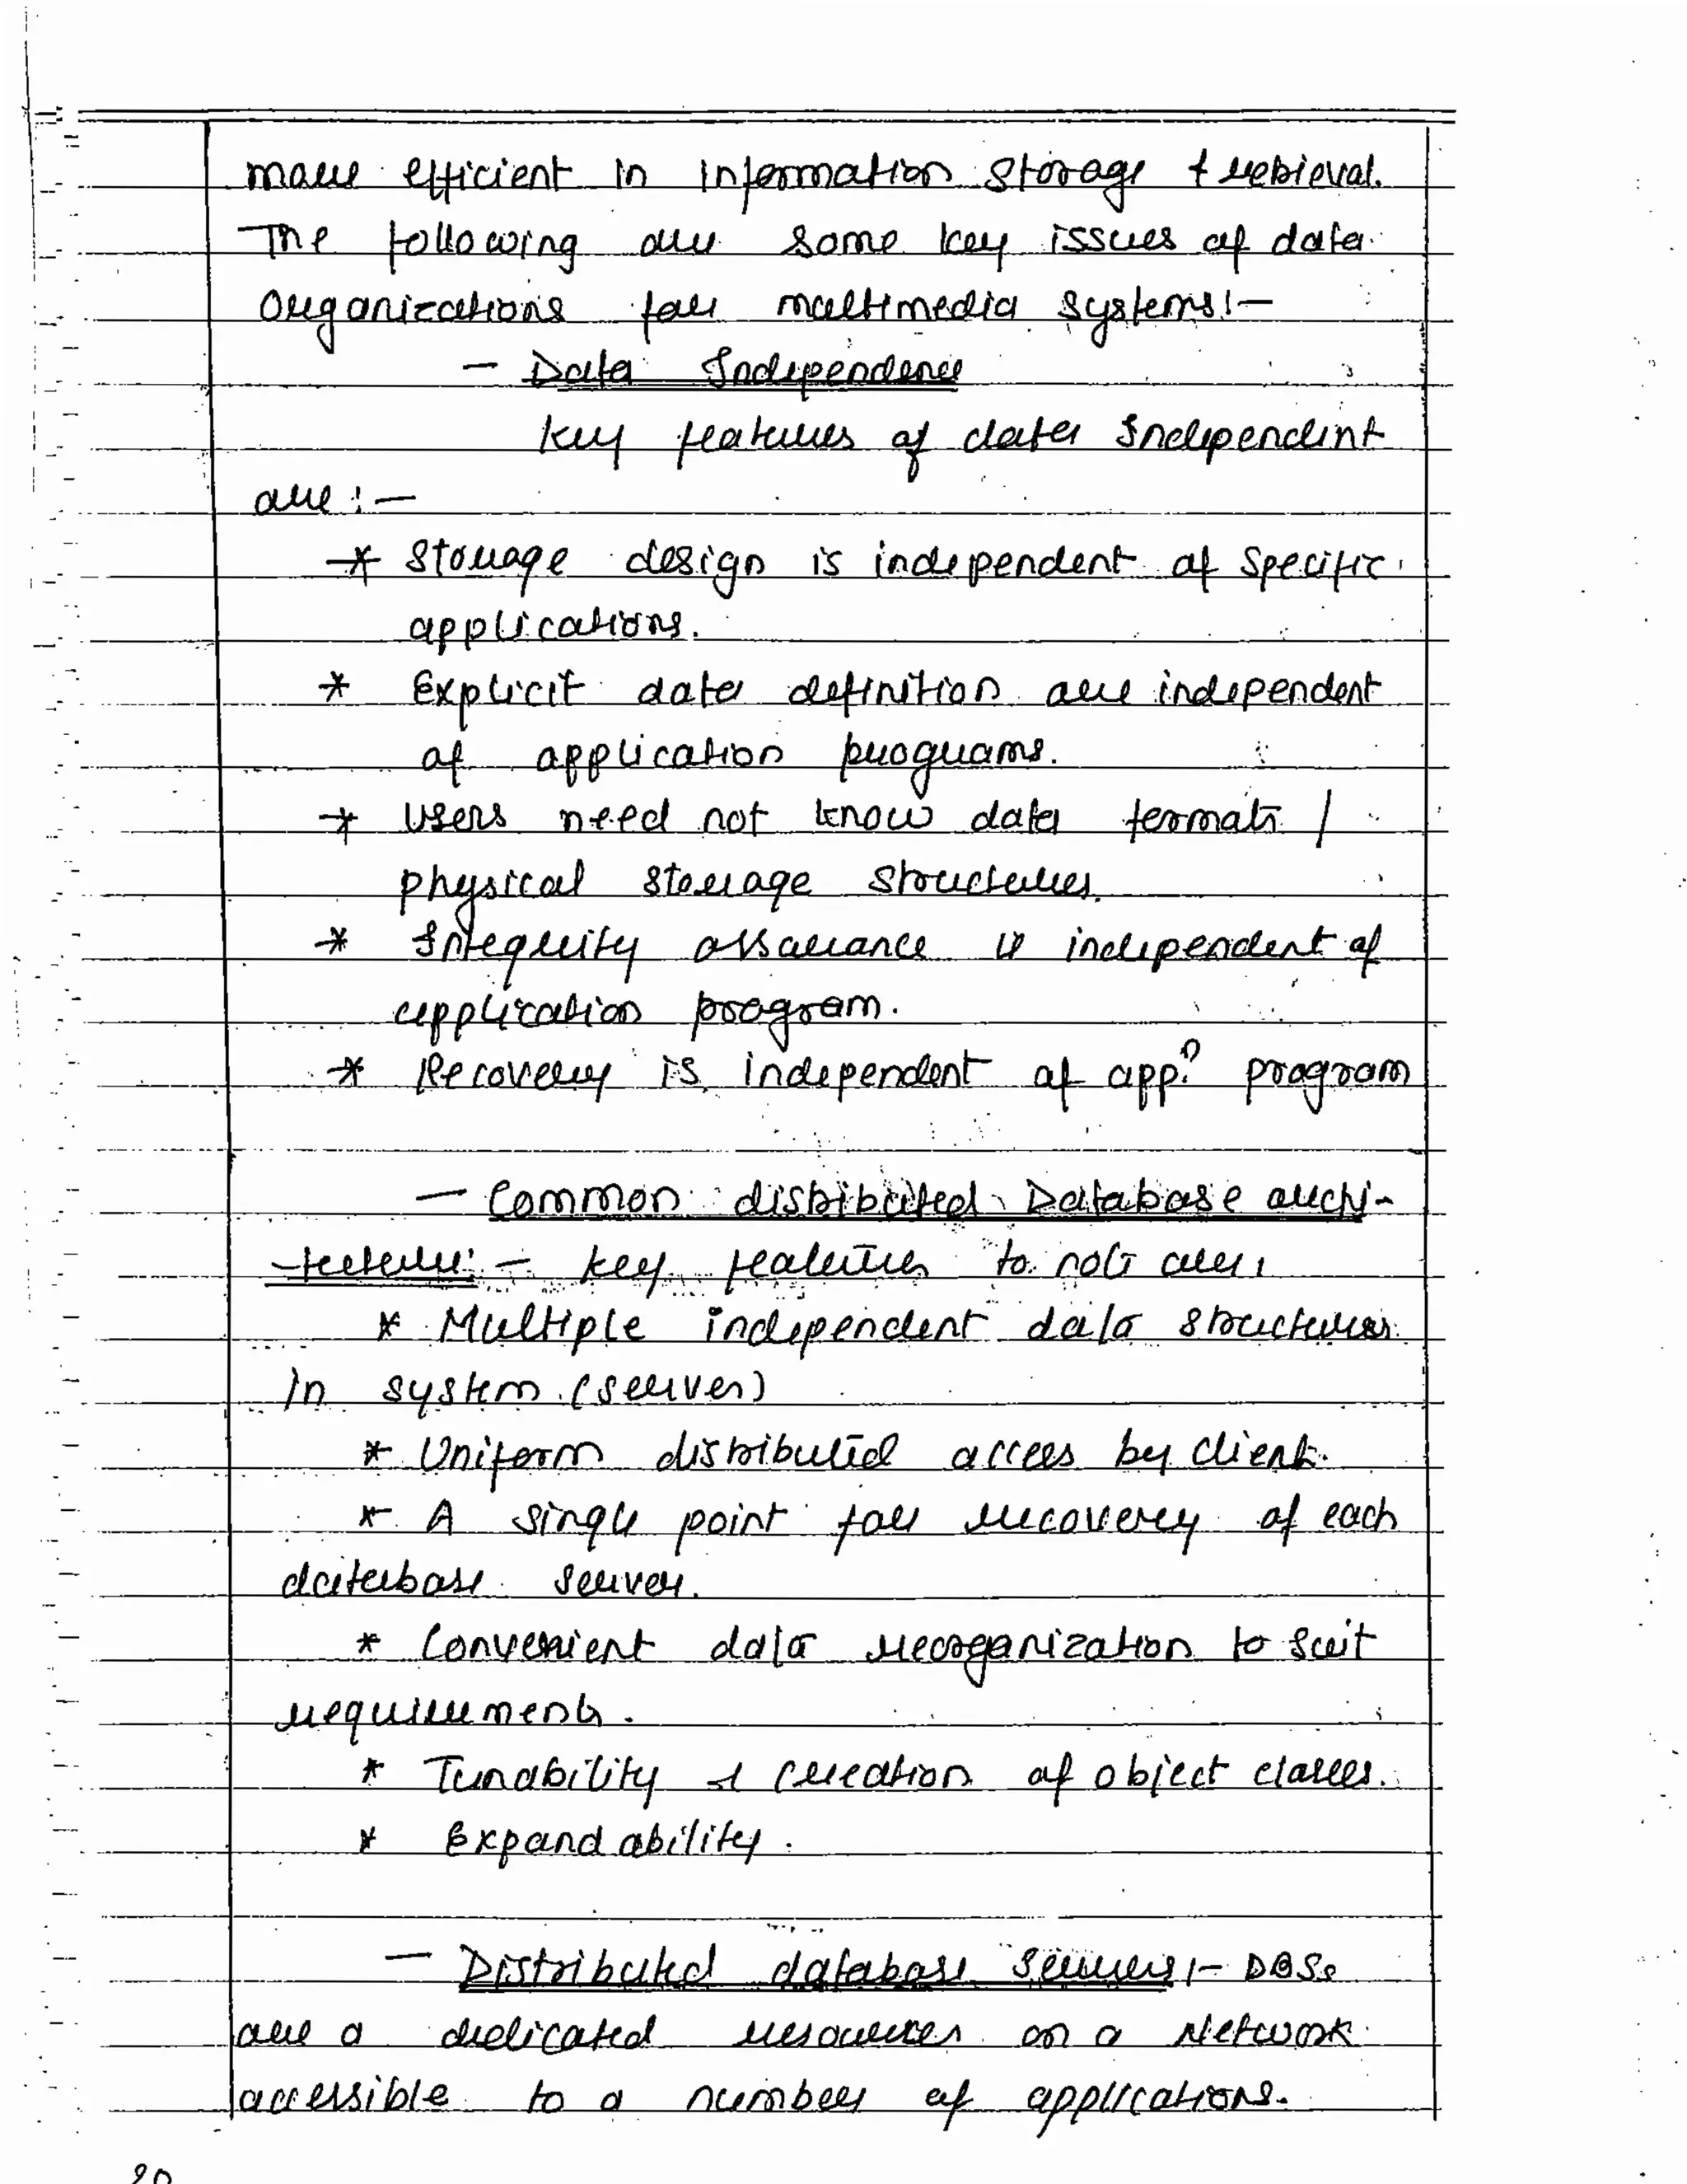 more efficient in information storage & retrieval.
The following are some key issues of data
Organizations for multimedia systems:-
- Data Independence
key features of data Independent
are :-
* Storage design is independent of specific
applications.
* Explicit data definition are independent
of application programs.
* Users need not know data formats /
physical storage structures.
* Integrity assurance is independent of
application program.
* Recovery is independent of appn program
- Common distributed Database archi-
-tecture:- key features to note are:
* Multiple independent data structures
in system (server)
* Uniform distributed access by client.
* A single point for recovery of each
database server.
* Convenient data reorganization to suit
requirements.
* Tunability & creation of object classes.
* Expandability.
- Distributed database servers:- DBSs
are a dedicated resources on a Network
accessible to a number of applications.
20